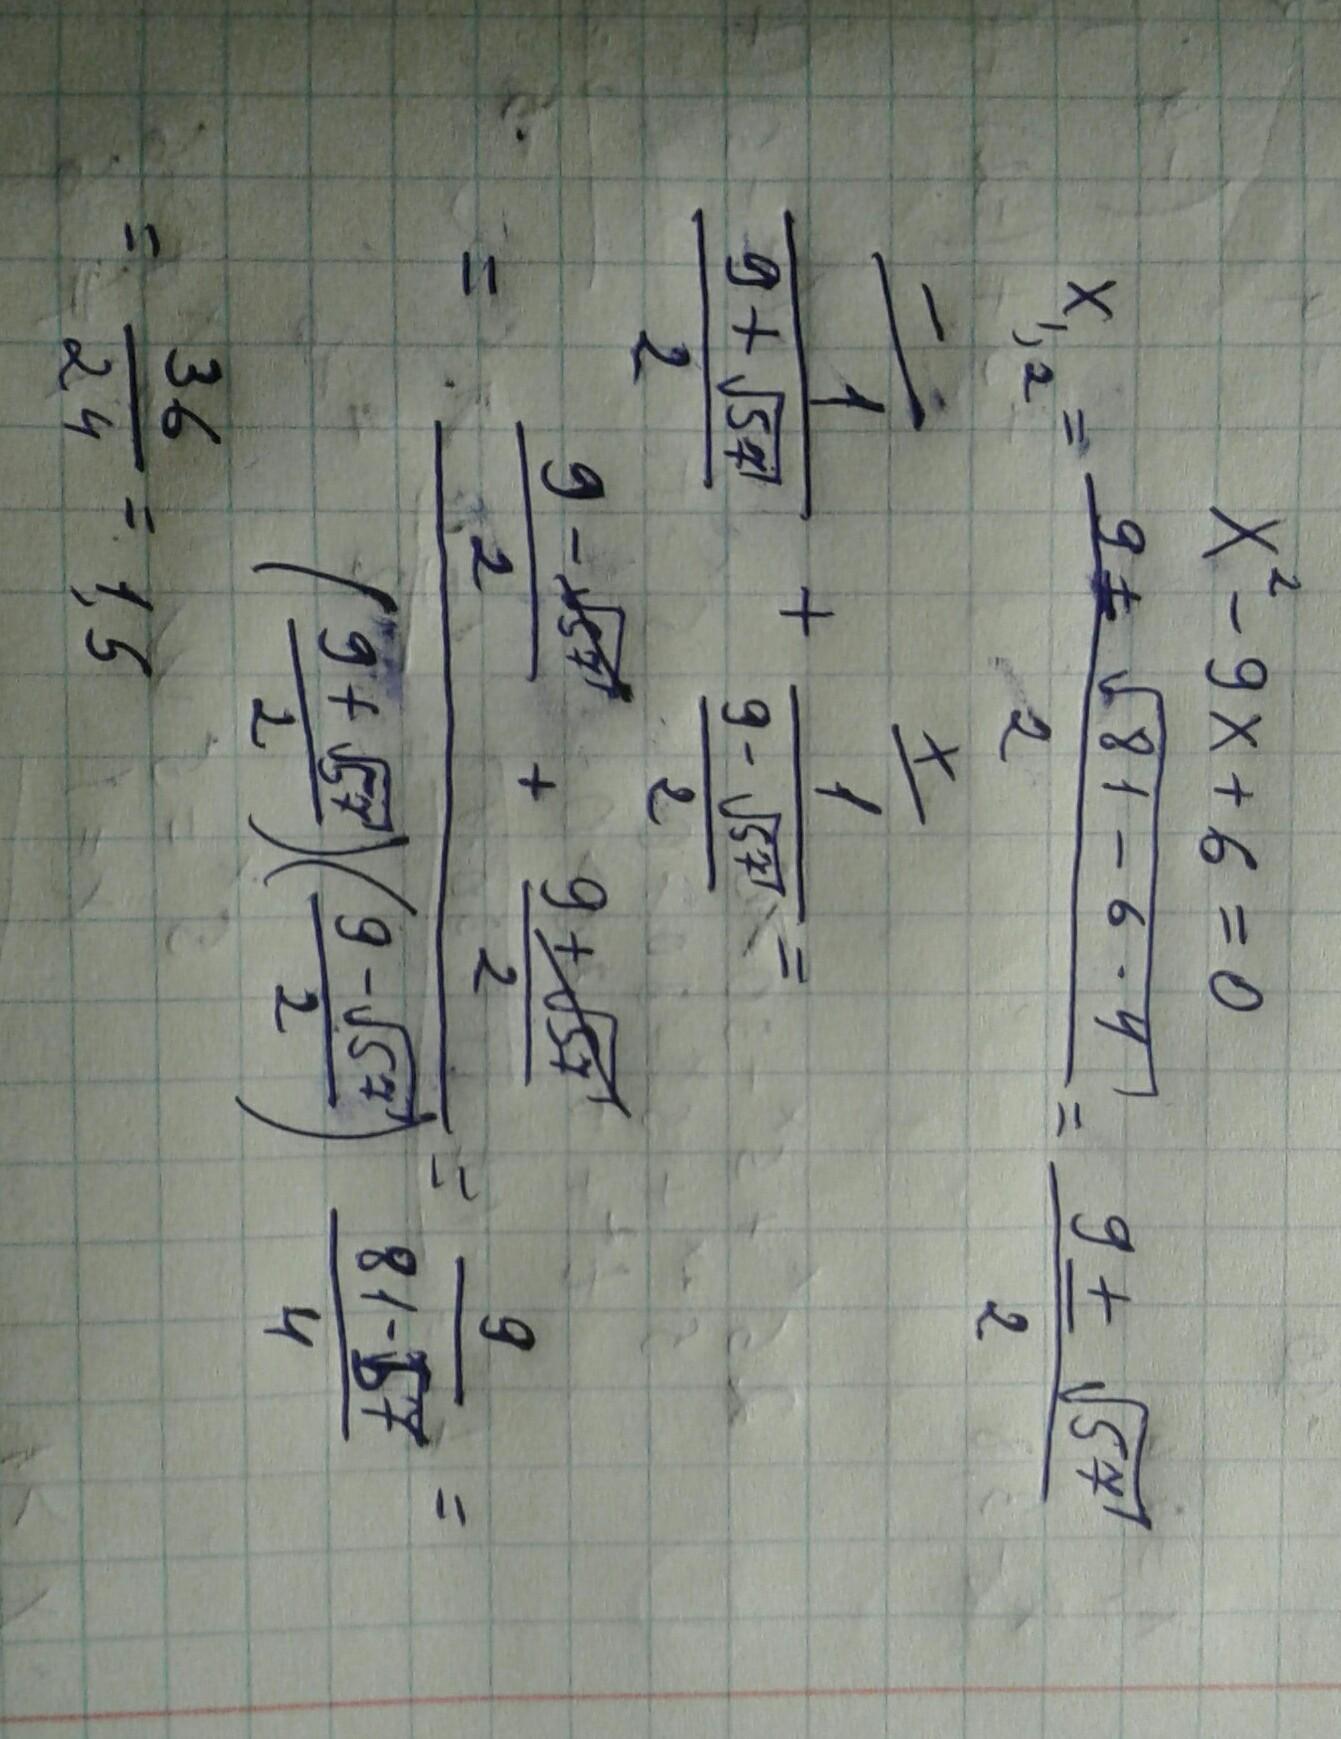 x² - 9x + 6 = 0
x₁,₂ = (9 ± √(81 - 6 · 4)) / 2 = (9 ± √57) / 2
1 / ((9 + √57) / 2) + 1 / ((9 - √57) / 2) =
= ((9 - √57) / 2 + (9 + √57) / 2) / (((9 + √57) / 2)((9 - √57) / 2)) = 9 / ((81 - 57) / 4) =
= 36 / 24 = 1,5